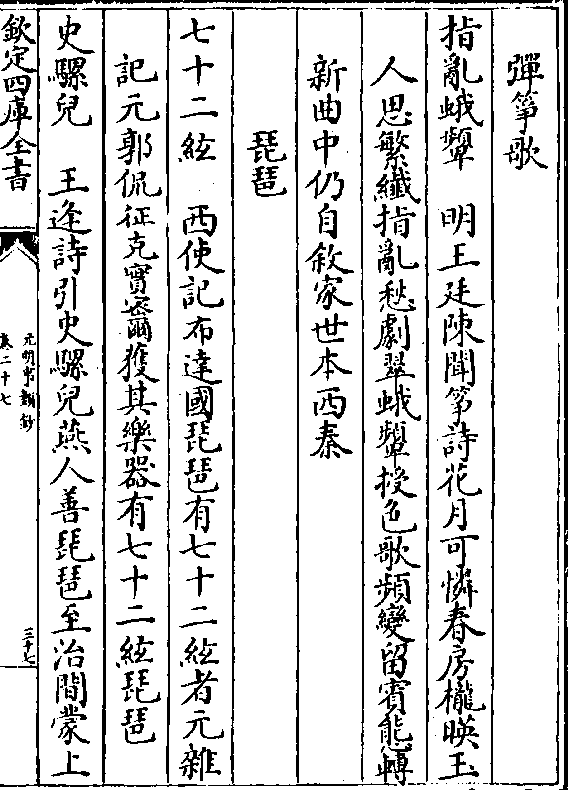 彈筝歌
指亂蛾顰　明王廷陳聞筝詩花月可憐春房櫳暎玉
人思繁纎指亂愁劇翠蛾顰授色歌頻變留賓態轉
新曲中仍自敘家世本西秦
琵琶
七十二絃　西使記布達國琵琶有七十二絃者元雜
記元郭侃征克實密爾獲其樂器有七十二絃琵琶
史騾兒　王逢詩引史騾兒燕人善琵琶至治間蒙上
欽定四庫全書
元明事類鈔
卷二十七
三十七